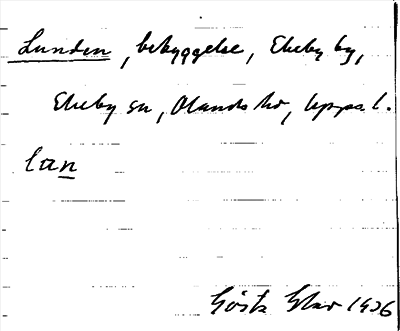 Lunden, bebyggelse, Ekeby by,
Ekeby sn, Olands hd, Upps. l.
lan
Gösta 1936